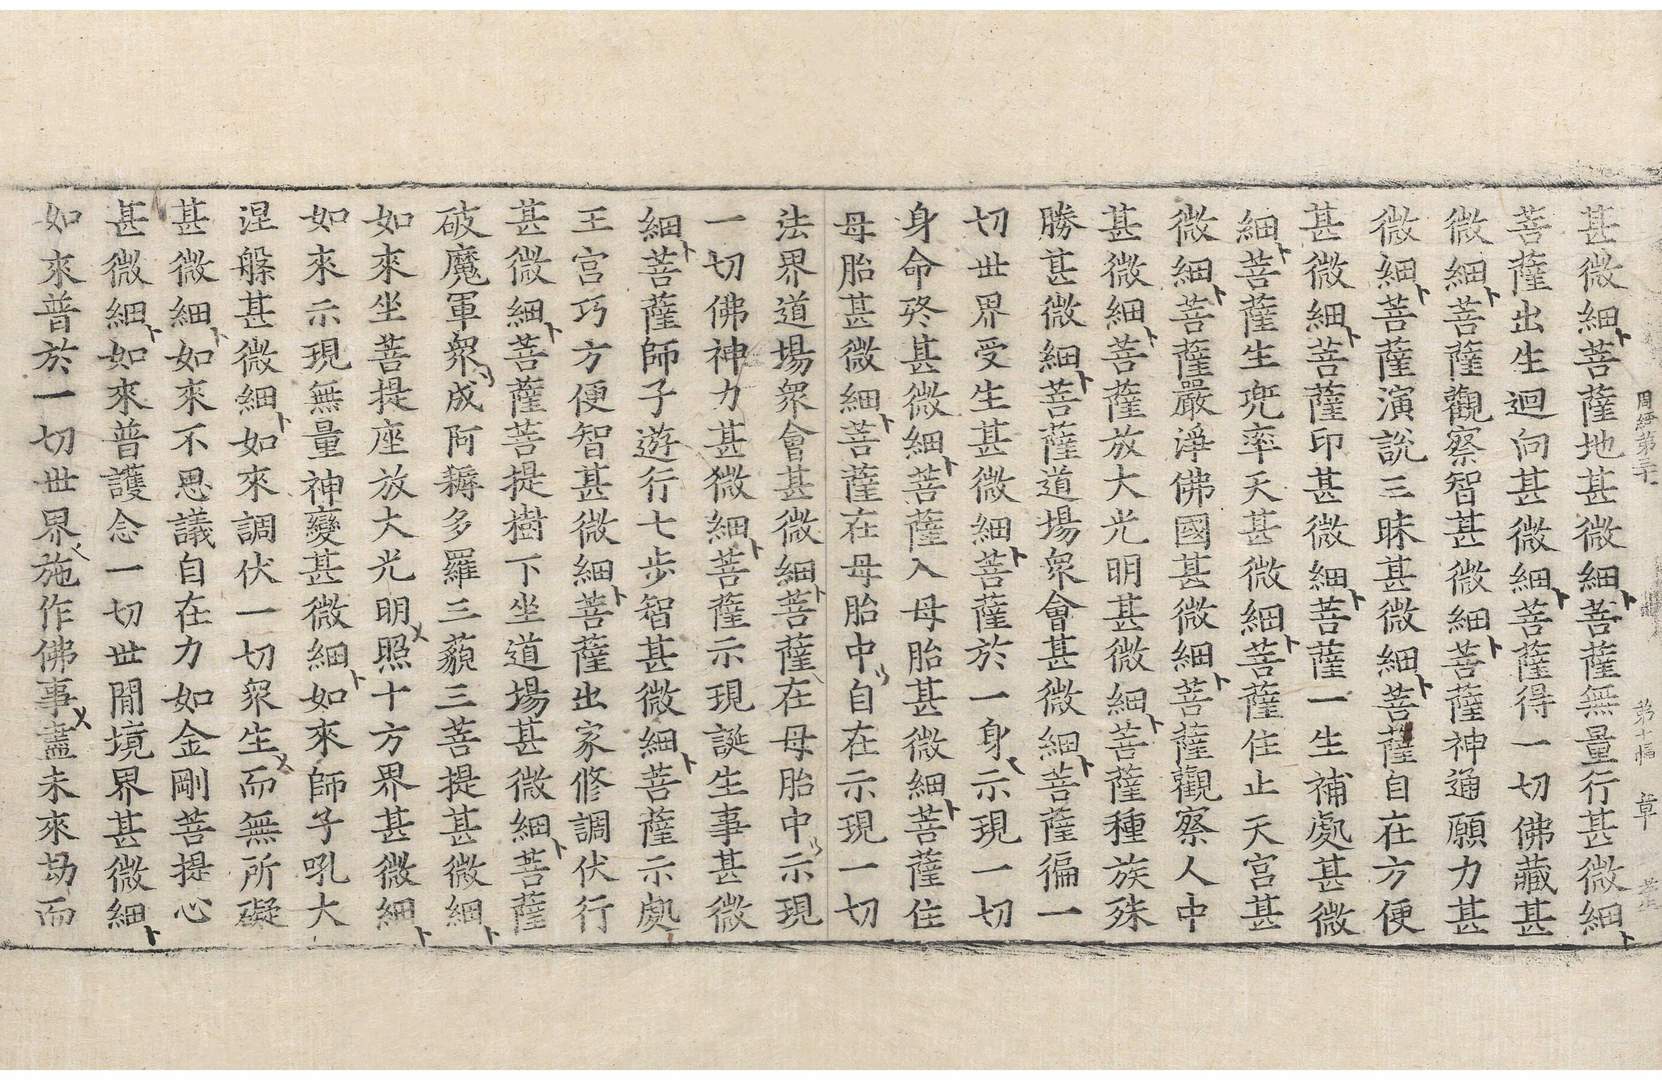 周經第三十
第十幅
章
甚微細菩薩地甚微細菩薩無量行甚微細
菩薩出生迴向甚微細菩薩得一切佛藏甚
微細菩薩觀察智甚微細菩薩神通願力甚
微細菩薩演說三昧甚微細菩薩自在方便
甚微細菩薩印甚微細菩薩一生補處甚微
細菩薩生兜率天甚微細菩薩住止天宮甚
微細菩薩嚴淨佛國甚微細菩薩觀察人中
甚微細菩薩放大光明甚微細菩薩種族殊
勝甚微細菩薩道場衆會甚微細菩薩徧一
切世界受生甚微細菩薩於一身示現一切
身命終甚微細菩薩入母胎甚微細菩薩住
母胎甚微細菩薩在母胎中自在示現一切
法界道場衆會甚微細菩薩在母胎中示現
一切佛神力甚微細菩薩示現誕生事甚微
細菩薩師子遊行七步智甚微細菩薩示處
王宮巧方便智甚微細菩薩出家修調伏行
甚微細菩薩菩提樹下坐道場甚微細菩薩
破魔軍衆成阿耨多羅三藐三菩提甚微細
如來坐菩提座放大光明照十方界甚微細
如來示現無量神變甚微細如來師子吼大
涅槃甚微細如來調伏一切衆生而無所礙
甚微細如來不思議自在力如金剛菩提心
甚微細如來普護念一切世間境界甚微細
如來普於一切世界施作佛事盡未來劫而